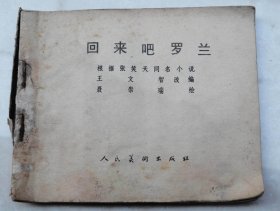 回来吧罗兰
根据张笑天同名小说
王文智改编
聂崇瑞绘
人民美术出版社